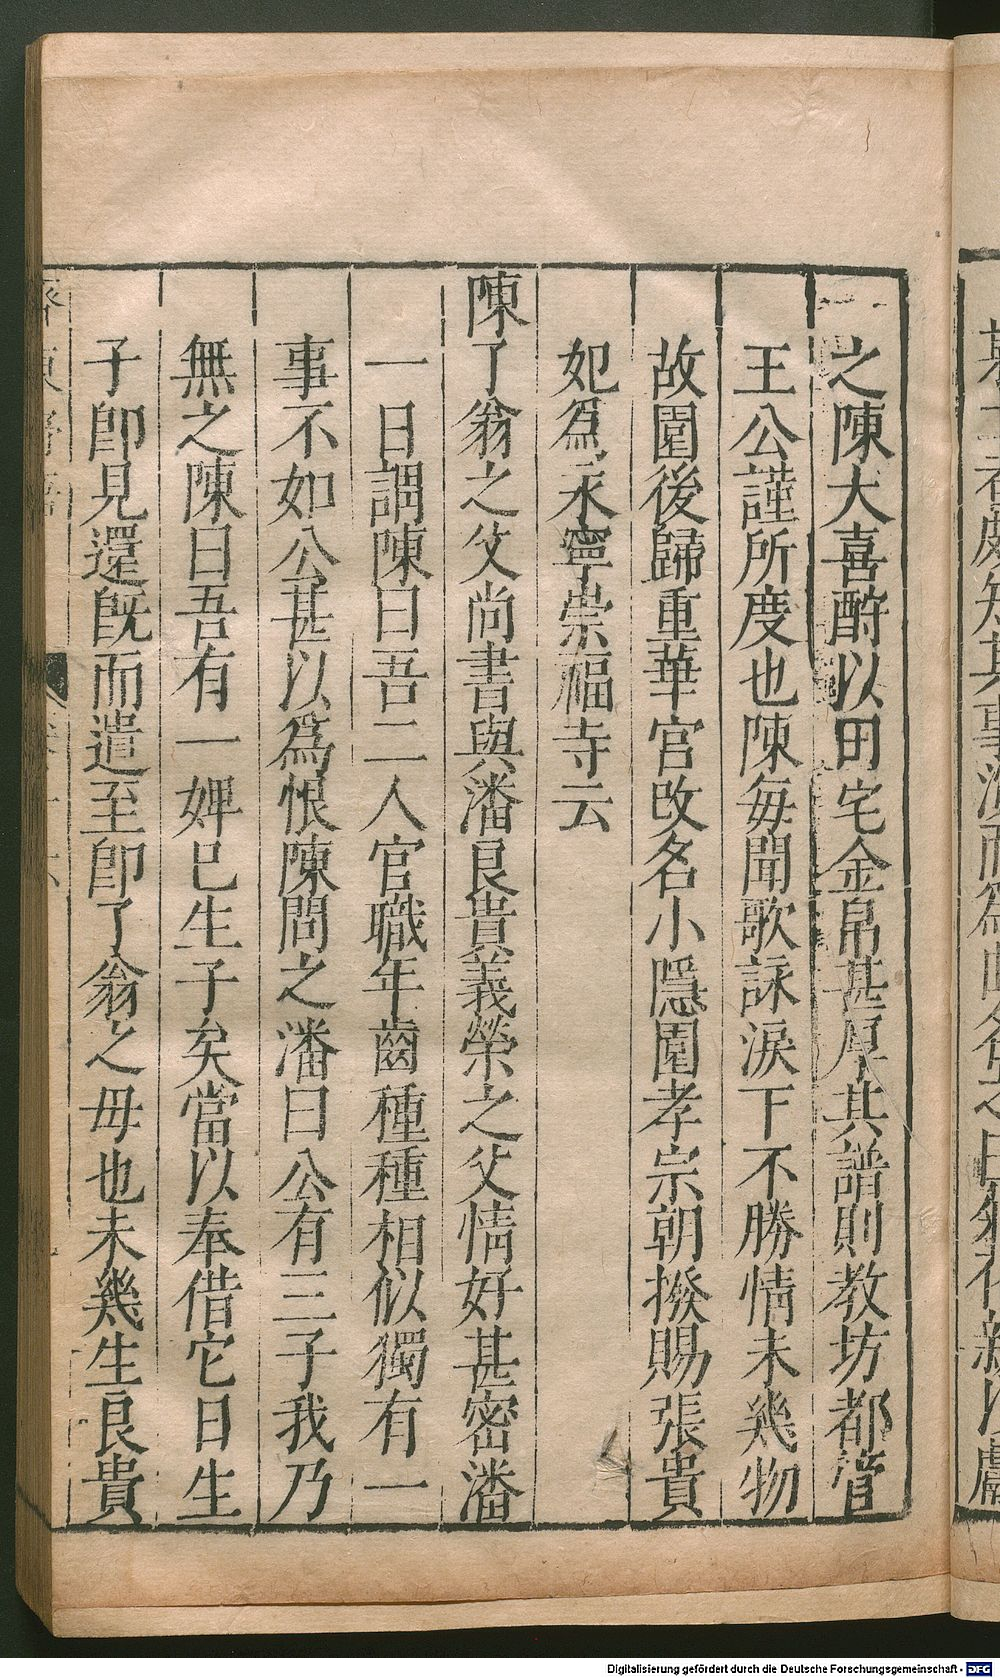 之陳大喜酧以田宅金帛甚厚其譜則教坊都管
王公謹所度也陳每聞歌詠淚下不勝情未幾物
故園後歸重華官改名小隱園孝宗朝撥賜張貴
妃爲永寧崇福寺云
陳了翁之父尚書與潘良貴義榮之父情好甚密潘
一日謂陳曰吾二人官職年齒種種相似獨有一
事不如公甚以爲恨陳問之潘曰公有三子我乃
無之陳曰吾有一婢已生子矣當以奉借它日生
子卽見還旣而遣至卽了翁之母也未幾生良貴
Digitalisierung gefördert durch die Deutsche Forschungsgemeinschaft - DFG